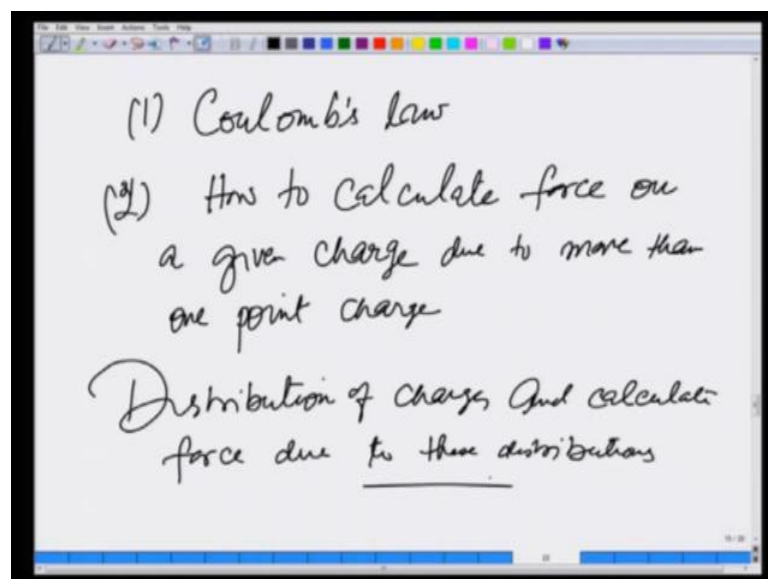 File Edit View Insert Actions Tools Help
(1) Coulomb's law
(2) How to calculate force on
a given charge due to more than
one point charge
Distribution of charges and calculate
force due to these distributions